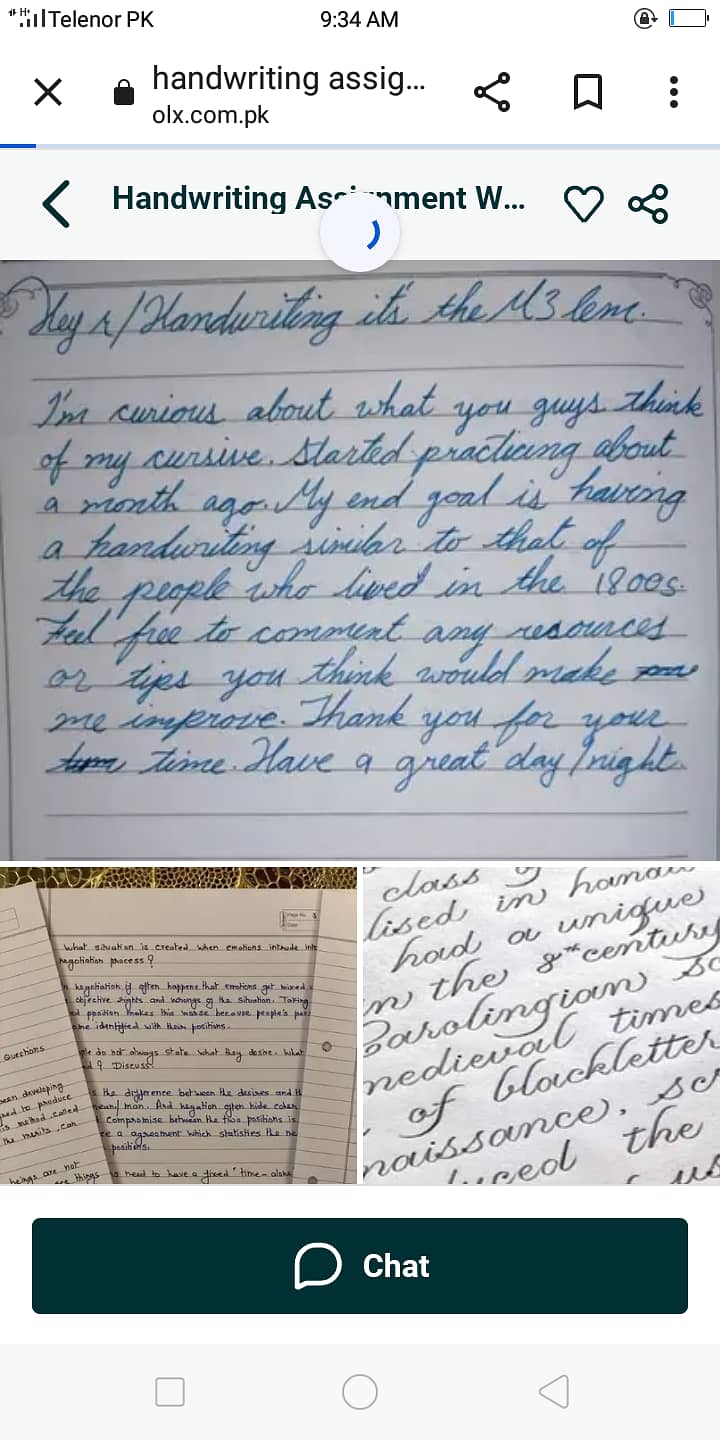 Telenor PK
9:34 AM
handwriting assig...
olx.com.pk
Handwriting Assignment W...
Hey r/Handwriting it's the M3 lem.
I'm curious about what you guys think
of my cursive. Started practicing about
a month ago. My end goal is having
a handwriting similar to that of
the people who lived in the 1800s.
Feel free to comment any resources
or tips you think would make
me improve. Thank you for your
time. Have a great day/night.
What situation is created when emotions intrude into
negotiation process?
negotiation, it often happens that emotions get mixed
objective rights and wrongs of the situation. Taking
position makes this worse because people's
identified with their positions.
do not always state what they desire. What
? Discuss.
the difference between the desires and
man. And negation often hide
Compromise between the two positions is
a agreement which statisties the
positions.
need to have a fixed time-
Questions
been developing
used to produce
method called
the merits, can
beings are not
things
class
lised in
had a unique
in the 8th century
Carolingian
medieval times
of blackletter
naissance,
the